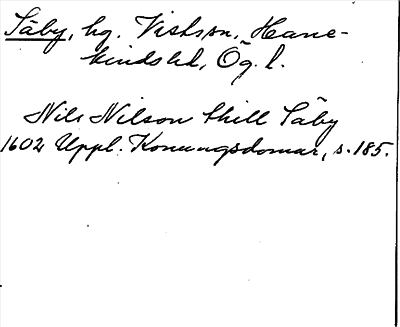 Säby, hg. Vistsn, Hane-
kinds hd, Ög. l.
Nils Nilson thill Säby
1602 Uppl. Konungsdomar, s. 185.